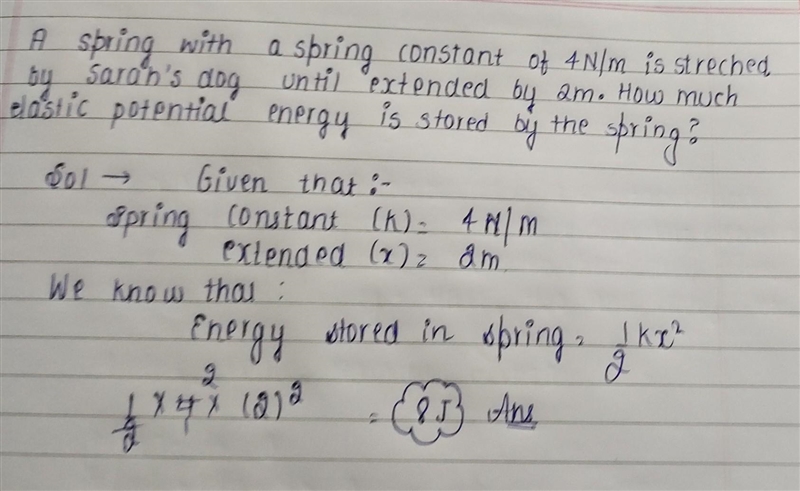 A spring with a spring constant of 4N/m is streched
by Sarah's dog until extended by 2m. How much
elastic potential energy is stored by the spring?
Sol → Given that :-
Spring constant (k) = 4N/m
extended (x) = 2m
We know that :
Energy stored in spring = 1/2 kx²
1/2 × 4 2 × (2)² = 8J Ans